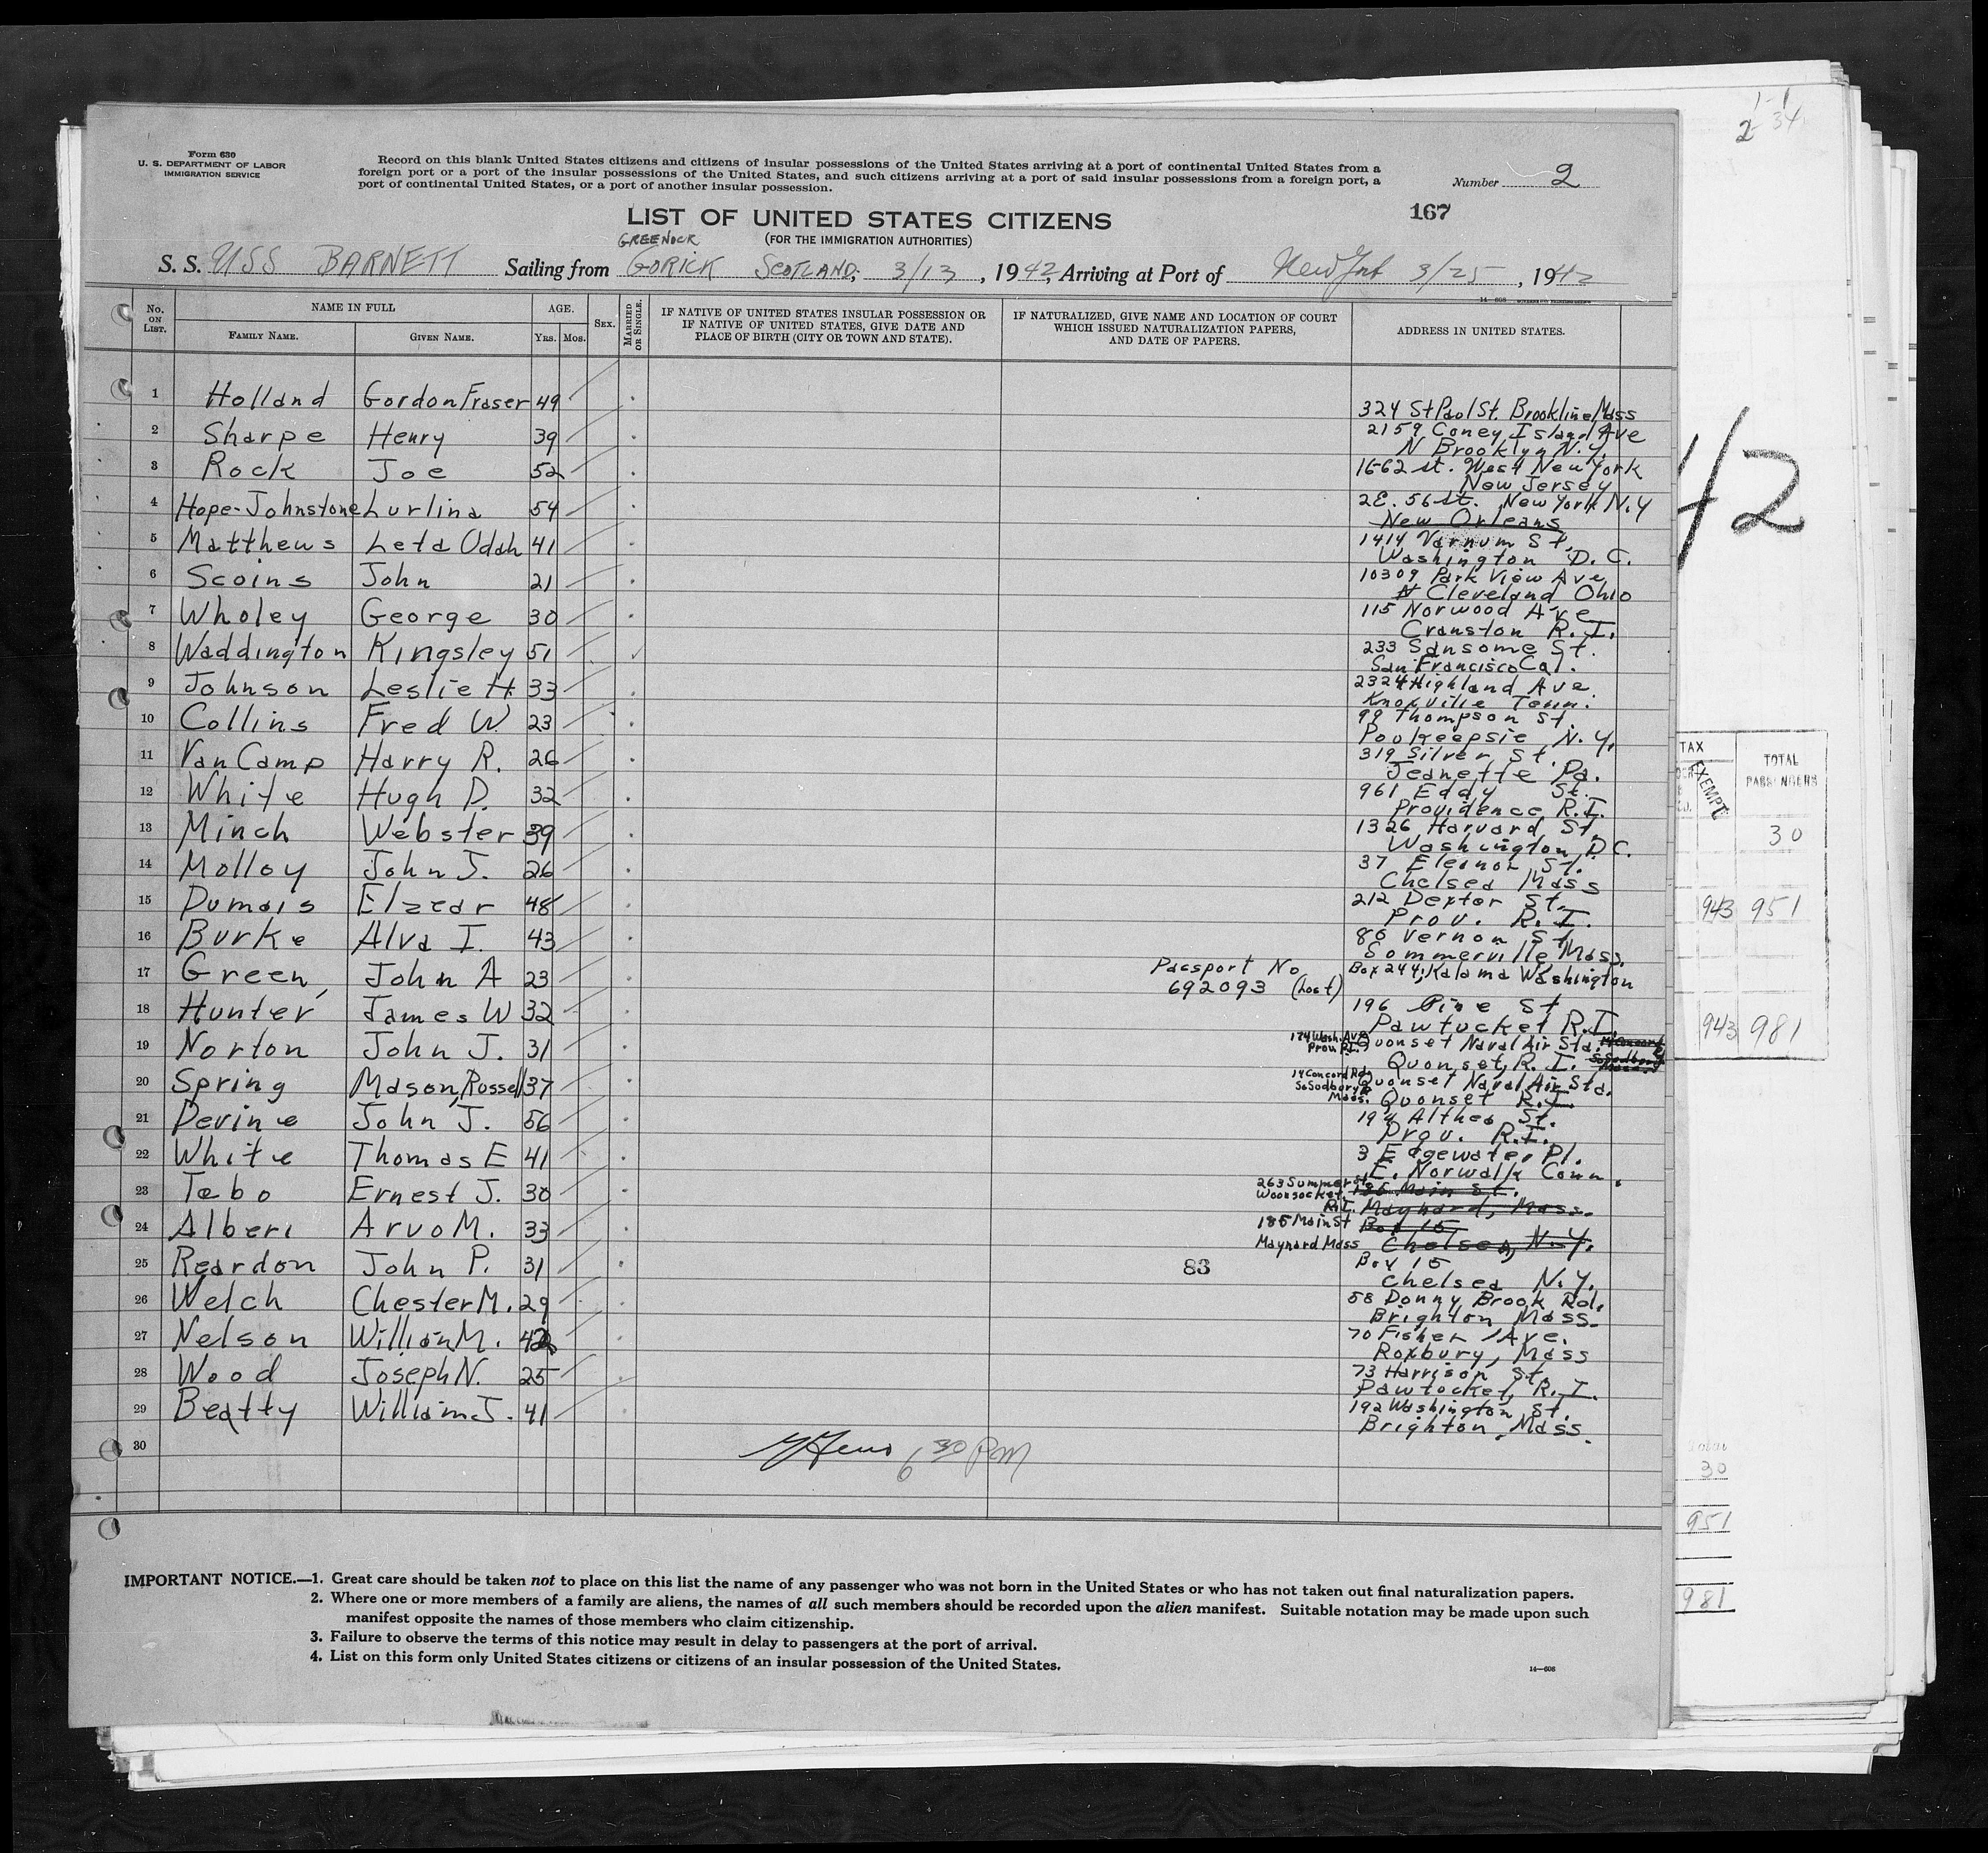 Form 630
U. S. DEPARTMENT OF LABOR
IMMIGRATION SERVICE
Record on this blank United States citizens and citizens of insular possessions of the United States arriving at a port of continental United States from a
foreign port or a port of the insular possessions of the United States, and such citizens arriving at a port of said insular possessions from a foreign port, a
port of continental United States, or a port of another insular possession.
Number 2
167
LIST OF UNITED STATES CITIZENS
(FOR THE IMMIGRATION AUTHORITIES)
GREENOCK
S. S. USS BARNETT Sailing from GORICK SCOTLAND, 3/13, 1942, Arriving at Port of New York 3/25, 1942
No. ON LIST. NAME IN FULL AGE. SEX. MARRIED OR SINGLE. IF NATIVE OF UNITED STATES INSULAR POSSESSION OR IF NATIVE OF UNITED STATES, GIVE DATE AND PLACE OF BIRTH (CITY OR TOWN AND STATE). IF NATURALIZED, GIVE NAME AND LOCATION OF COURT WHICH ISSUED NATURALIZATION PAPERS, AND DATE OF PAPERS. ADDRESS IN UNITED STATES.
FAMILY NAME. GIVEN NAME. YRS. MOS.
1 Holland Gordon Fraser 49 324 St Paul St. Brookline Mass
2 Sharpe Henry 39 2159 Coney Island Ave
N Brooklyn N.Y.
3 Rock Joe 52 16-62 st. West New York
New Jersey
4 Hope-Johnstone Lurlina 54 2E. 56 st. New York N.Y
New Orleans
5 Matthews Leta Odah 41 1414 Varnum St.
Washington D.C.
6 Scoins John 21 10309 Park View Ave
Cleveland Ohio
7 Wholey George 30 115 Norwood Ave
Cranston R.I.
8 Waddington Kingsley 51 233 Sansome St.
San Francisco Cal.
9 Johnson Leslie H. 33 2324 Highland Ave.
Knoxville Tenn.
10 Collins Fred W. 23 99 Thompson St.
Pookeepsie N.Y.
11 Van Camp Harry R. 26 319 Silver St.
Jeanette Pa.
12 White Hugh D. 32 961 Eddy St.
Providence R.I.
13 Minch Webster 39 1326 Harvard St.
Washington D.C.
14 Molloy John J. 26 37 Eleanor St.
Chelsea Mass
15 Dumais Elzear 48 212 Dexter St.
Prov. R.I.
16 Burke Alva I. 43 80 Vernon St
Sommerville Mass.
17 Green, John A 23 Passport No 692093 (Lost) Box 244, Kalama Washington
18 Hunter James W 32 196 Pine St
Pawtucket R.I.
19 Norton John J. 31 174 Wash. Ave Prov. R.I. Quonset Naval Air Sta.
Quonset, R.I.
20 Spring Mason, Russell 37 14 Concord Rd. So Sudbury Mass. Quonset Naval Air Sta.
Quonset R.I.
21 Devine John J. 56 194 Althea St.
Prov. R.I.
22 White Thomas E 41 3 Edgewater Pl.
E. Norwalk Conn.
23 Tebo Ernest J. 30 263 Summer St. Woonsocket R.I. 185 Main St.
Maynard, Mass.
24 Alberi Arvo M. 33 185 Main St Maynard Mass Box 15
Chelsea, N.Y.
25 Reardon John P. 31 83 Box 15
Chelsea N.Y.
26 Welch Chester M. 29 58 Donny Brook Rd.
Brighton Mass.
27 Nelson William M. 42 70 Fisher Ave.
Roxbury, Mass
28 Wood Joseph N. 25 73 Harrison St.
Pawtocket, R.I.
29 Beatty William J. 41 192 Washington St.
Brighton, Mass.
30
6 30 PM
IMPORTANT NOTICE.—1. Great care should be taken not to place on this list the name of any passenger who was not born in the United States or who has not taken out final naturalization papers.
2. Where one or more members of a family are aliens, the names of all such members should be recorded upon the alien manifest. Suitable notation may be made upon such
manifest opposite the names of those members who claim citizenship.
3. Failure to observe the terms of this notice may result in delay to passengers at the port of arrival.
4. List on this form only United States citizens or citizens of an insular possession of the United States.
14—608
42
TAX
EXEMPT
TOTAL
PASSENGERS
30
943 951
943 981
30
951
981